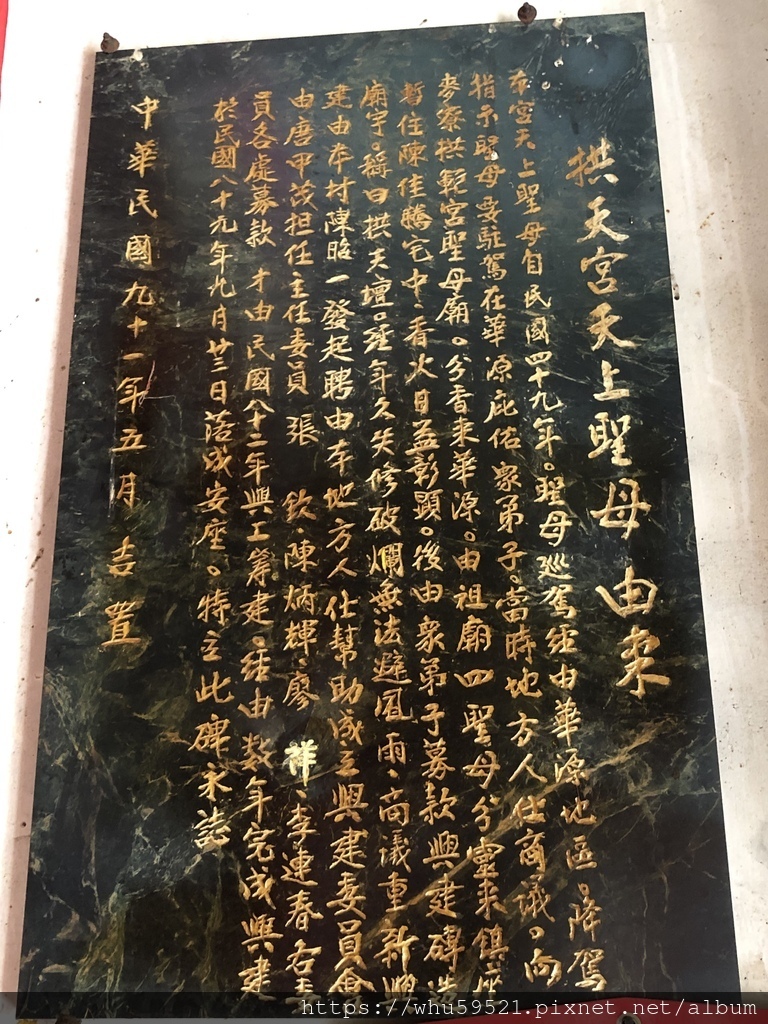 拱天宮天上聖母由來
本宮天上聖母自民國四十九年。聖母巡駕經由華源地區。降駕
指示聖母要駐駕在華源庇佑眾弟子。當時地方人仕商議。向
麥寮拱範宮聖母廟。分香來華源。由祖廟四聖母分靈來鎮
暫住陳佳騰宅中、香火日益彰顯。後由眾弟子募款興建磚造
廟宇。稱曰拱天壇。經年久失修破爛無法避風雨、商議重新興
建由本村陳昭一發起聘由本地方人仕幫助成立興建委員會
由唐甲茂担任主任委員 張 欽、陳炳輝、廖 祥、李連春各委
員各處募款 才由民國八十二年興工籌建。經由数年完成興建
於民國八十元年九月廿三日落成安座。特立此碑永誌
中華民國九十一年五月 吉置
https://whu59521.pixnet.net/album